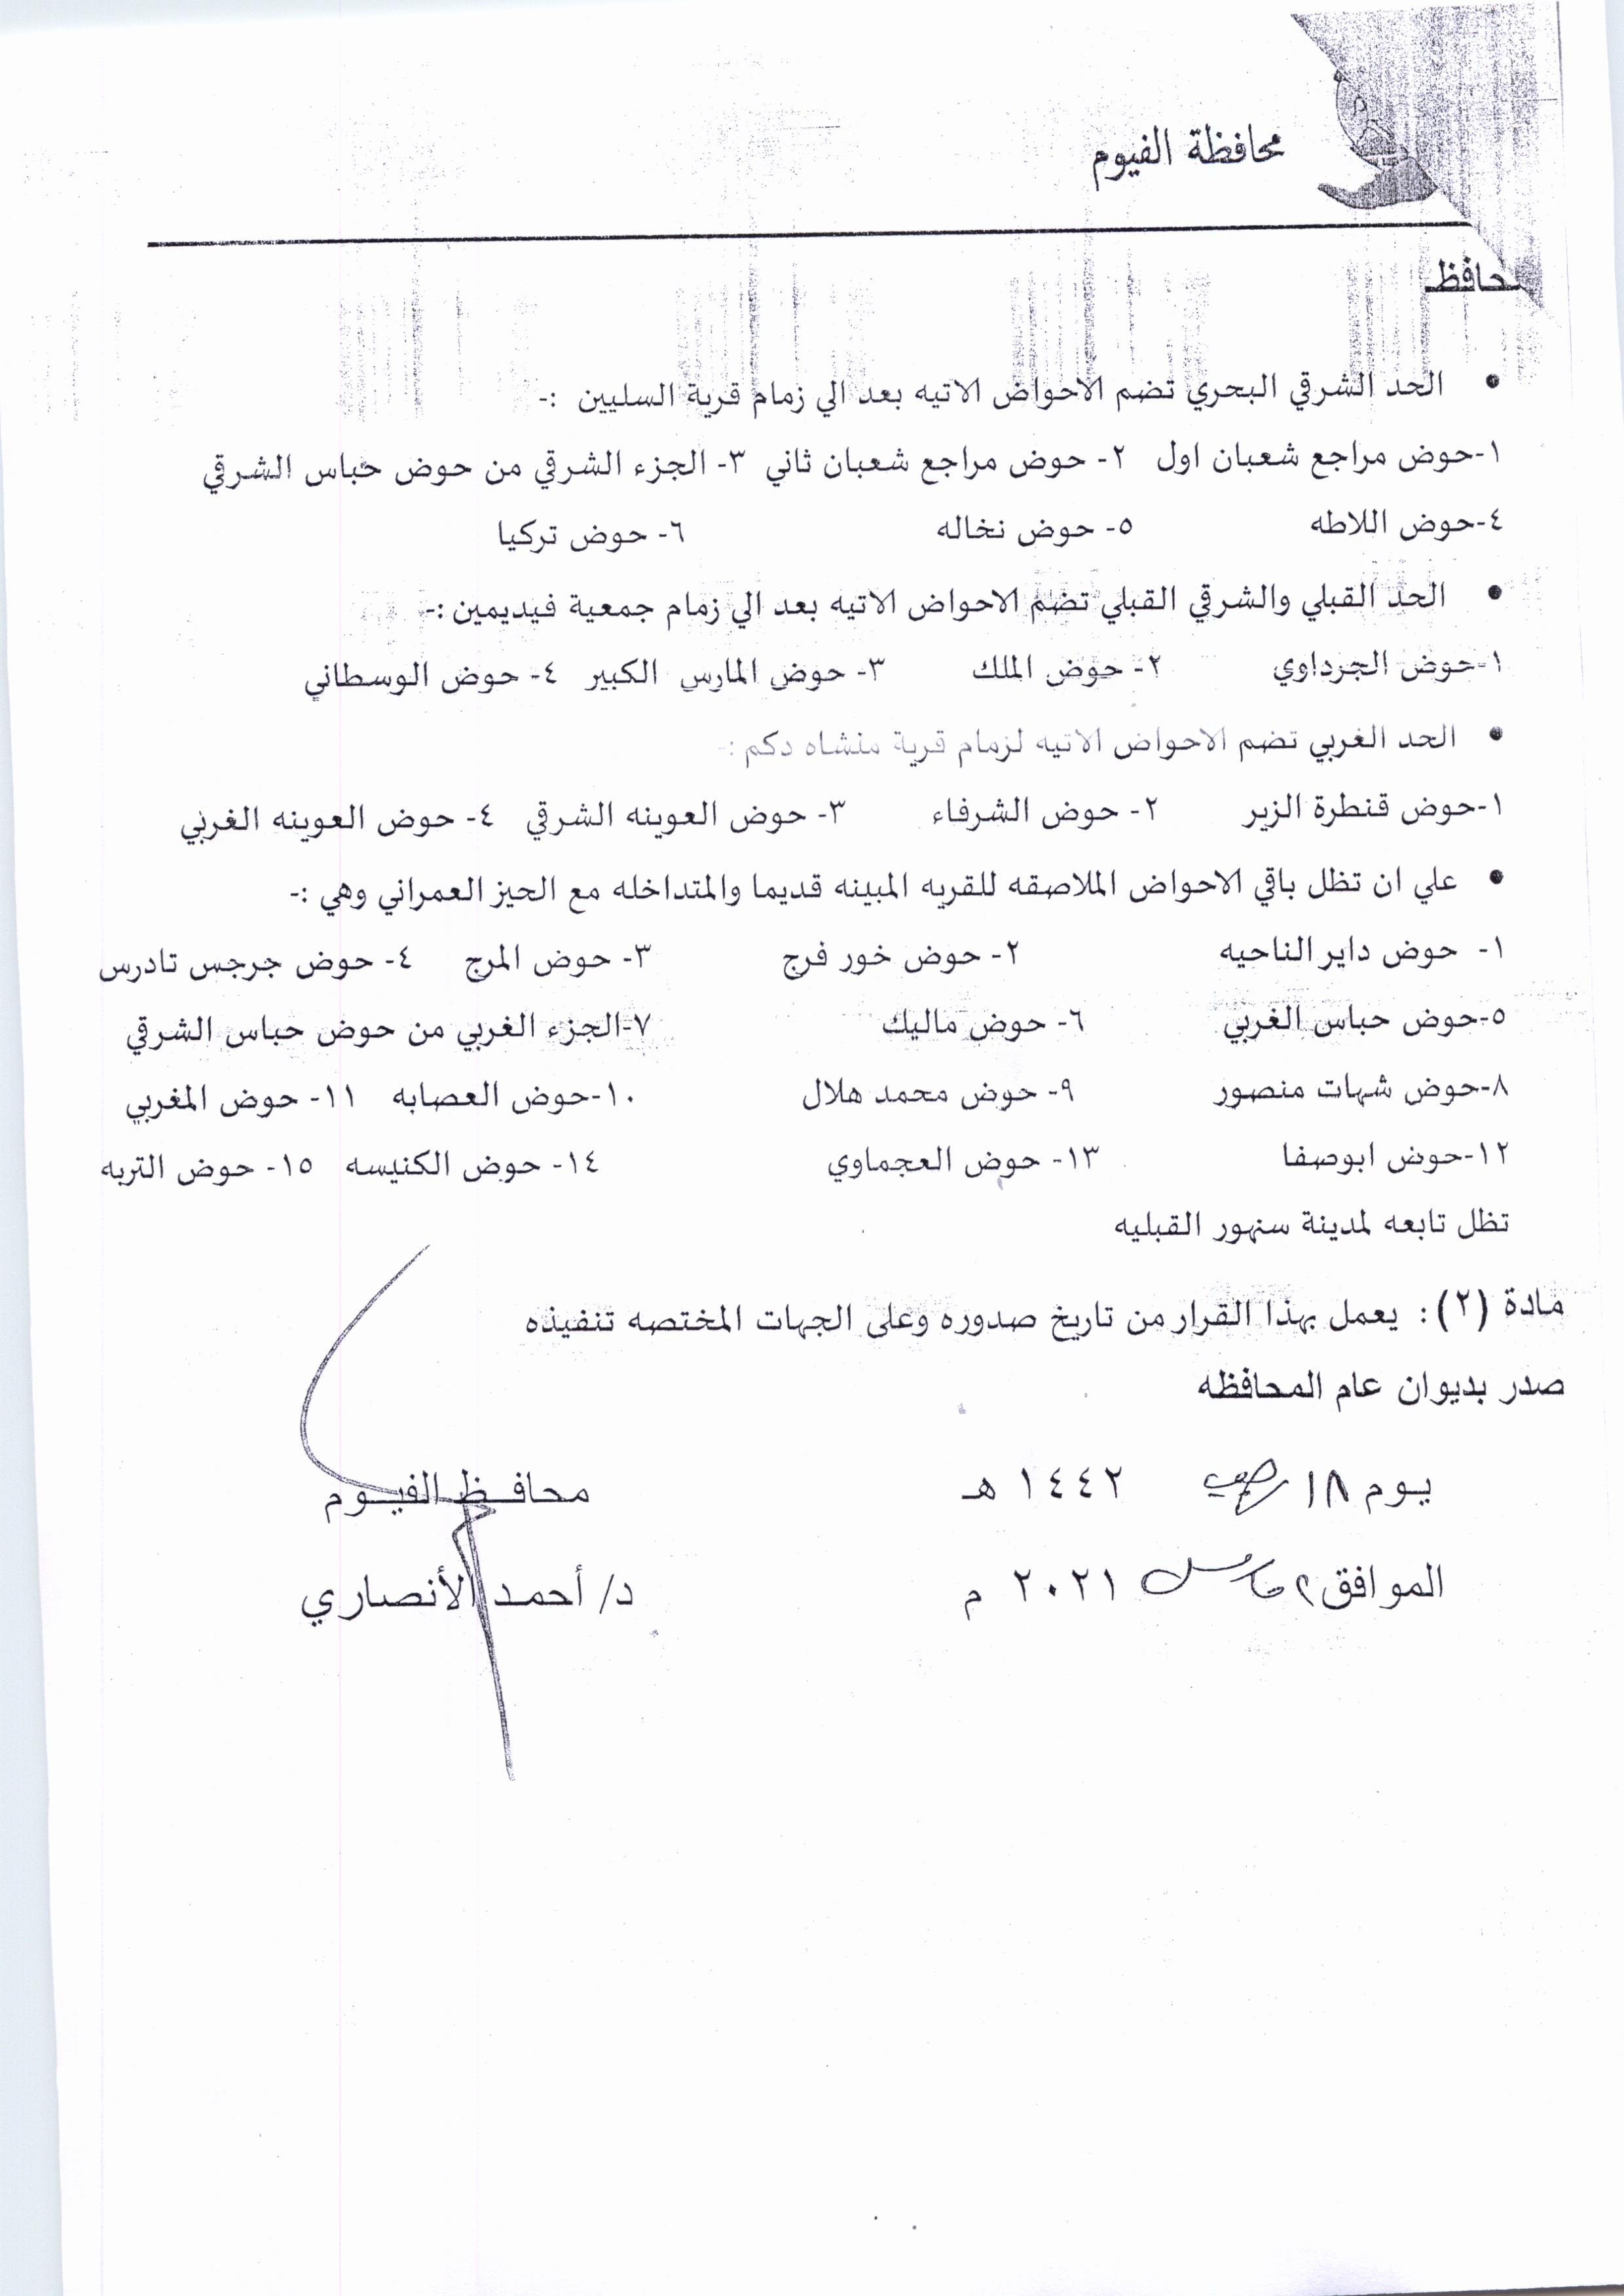 محافظة الفيوم
محافظ
• الحد الشرقي البحري تضم الاحواض الاتيه بعد الي زمام قرية السليين :-
١-حوض مراجع شعبان اول ٢- حوض مراجع شعبان ثاني ٣- الجزء الشرقي من حوض حباس الشرقي
٤-حوض اللاطه ٥- حوض نخاله ٦- حوض تركيا
• الحد القبلي والشرقي القبلي تضم الاحواض الاتيه بعد الي زمام جمعية فيديمين :-
١-حوض الجرداوي ٢- حوض الملك ٣- حوض المارس الكبير ٤- حوض الوسطاني
• الحد الغربي تضم الاحواض الاتيه لزمام قرية منشاه دكم :-
١-حوض قنطرة الزير ٢- حوض الشرفاء ٣- حوض العوينه الشرقي ٤- حوض العوينه الغربي
• علي ان تظل باقي الاحواض الملاصقه للقريه المبينه قديما والمتداخله مع الحيز العمراني وهي :-
١- حوض داير الناحيه ٢- حوض خور فرج ٣- حوض المرج ٤- حوض جرجس تادرس
٥-حوض حباس الغربي ٦- حوض ماليك ٧-الجزء الغربي من حوض حباس الشرقي
٨-حوض شهات منصور ٩- حوض محمد هلال ١٠-حوض العصابه ١١- حوض المغربي
١٢-حوض ابوصفا ١٣- حوض العجماوي ١٤- حوض الكنيسه ١٥- حوض التربه
تظل تابعه لمدينة سنهور القبليه
مادة (٢) : يعمل بهذا القرار من تاريخ صدوره وعلى الجهات المختصه تنفيذه
صدر بديوان عام المحافظه
يوم ١٨ رجب ١٤٤٢ هـ
الموافق ٢ مارس ٢٠٢١ م
محافظ الفيوم
د/ أحمد الأنصاري